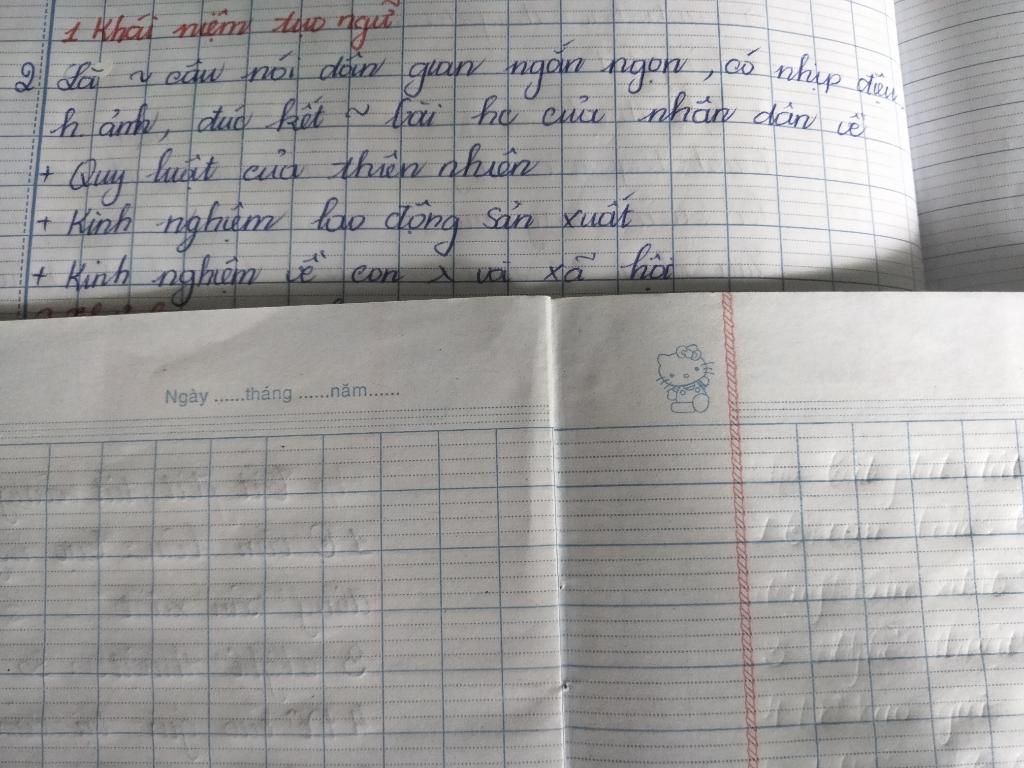 1 Khái niệm tục ngữ
2 Là ~ câu nói dân gian ngắn ngọn, có nhịp điệu
h ảnh, đúc kết ~ bài hc của nhân dân về
+ Quy luật của thiên nhiên
+ Kinh nghiệm lao động sản xuất
+ Kinh nghiệm về con λ và xã hội
Ngày ......tháng ......năm......